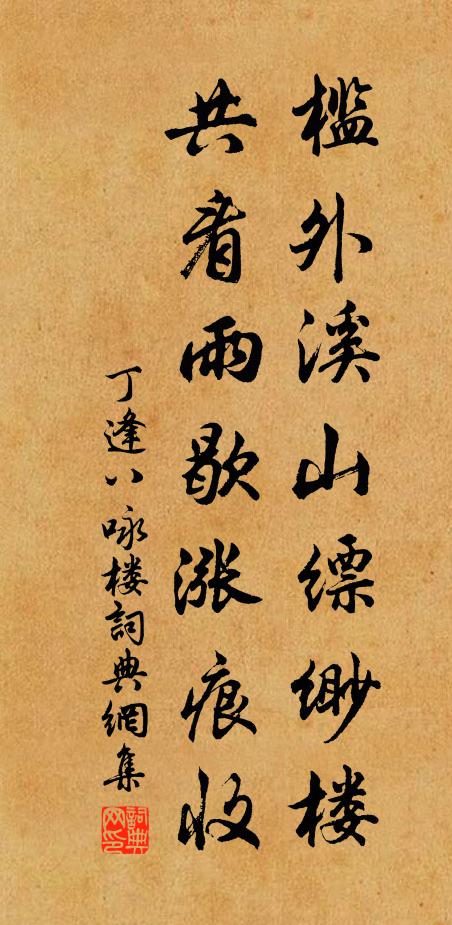 槛外溪山缥缈楼
共看雨歇涨痕收
丁逢八咏楼词典網集
詞典网印